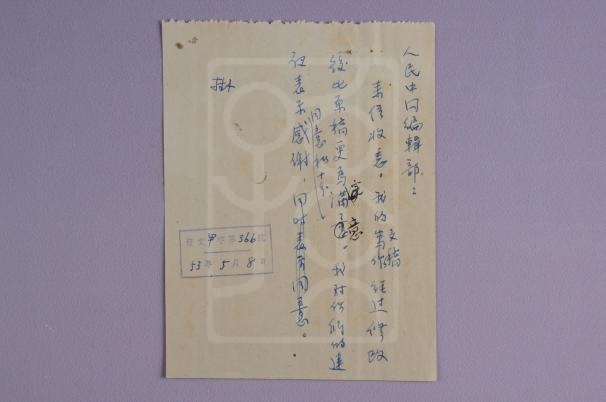 人民中国编辑部：
来信收悉。我的文稿经过修改
后比原稿更为满意。我对你们的建
议表示感谢，同时表示同意。
同意和十分
发文甲字第366号
53年5月8日